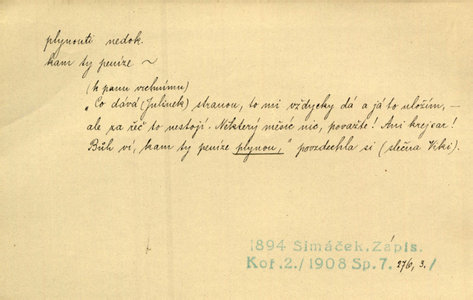 plynouti nedok.
kam ty peníze ~
(k panu vrchnímu)
„Co dává (Julinek) stranou, to mi vždycky dá a já to uložím, —
ale za řeč to nestojí. Některý měsíc nic, považte! Ani krejcar!
Bůh ví, kam ty peníze plynou,“ povzdechla si (slečna Viki).
1894 Šimáček. Zápis.
Kot. 2./1908 Sp. 7. 276, 3./